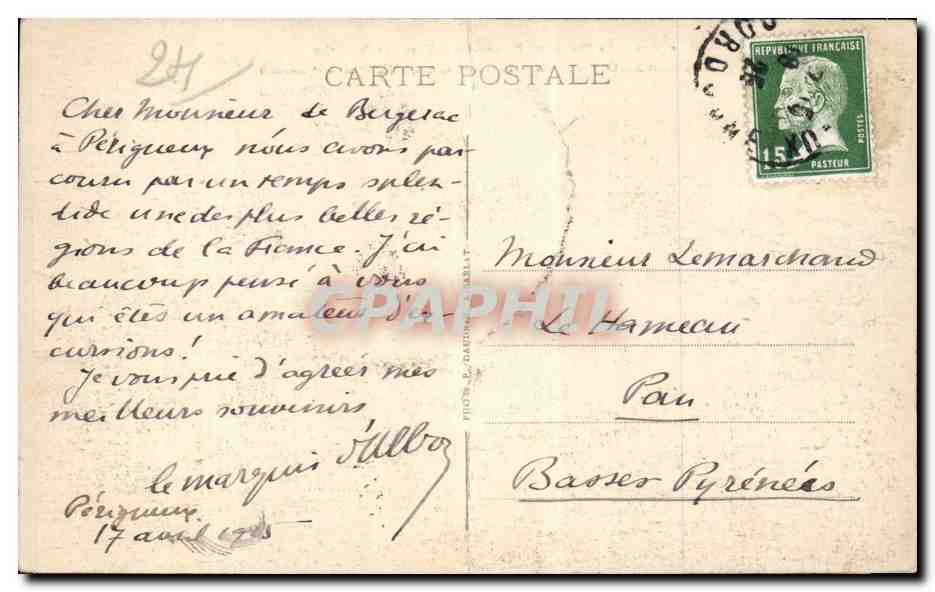 24
CARTE POSTALE
Cher Monsieur de Bergerac
à Périgueux nous avons par-
couru par un temps splen-
dide une des plus belles ré-
gions de la France. J'ai
beaucoup pensé à vous
qui êtes un amateur d'ex-
cursions!
Je vous prie d'agréer mes
meilleurs souvenirs
le marquis d'Albon
Périgueux
17 avril 1925
REPVBLIQVE FRANÇAISE
POSTES
15
PASTEUR
DORDOGNE
Monsieur Lemarchand
Le Hameau
Pau
Basses Pyrénées
CPAPHIL